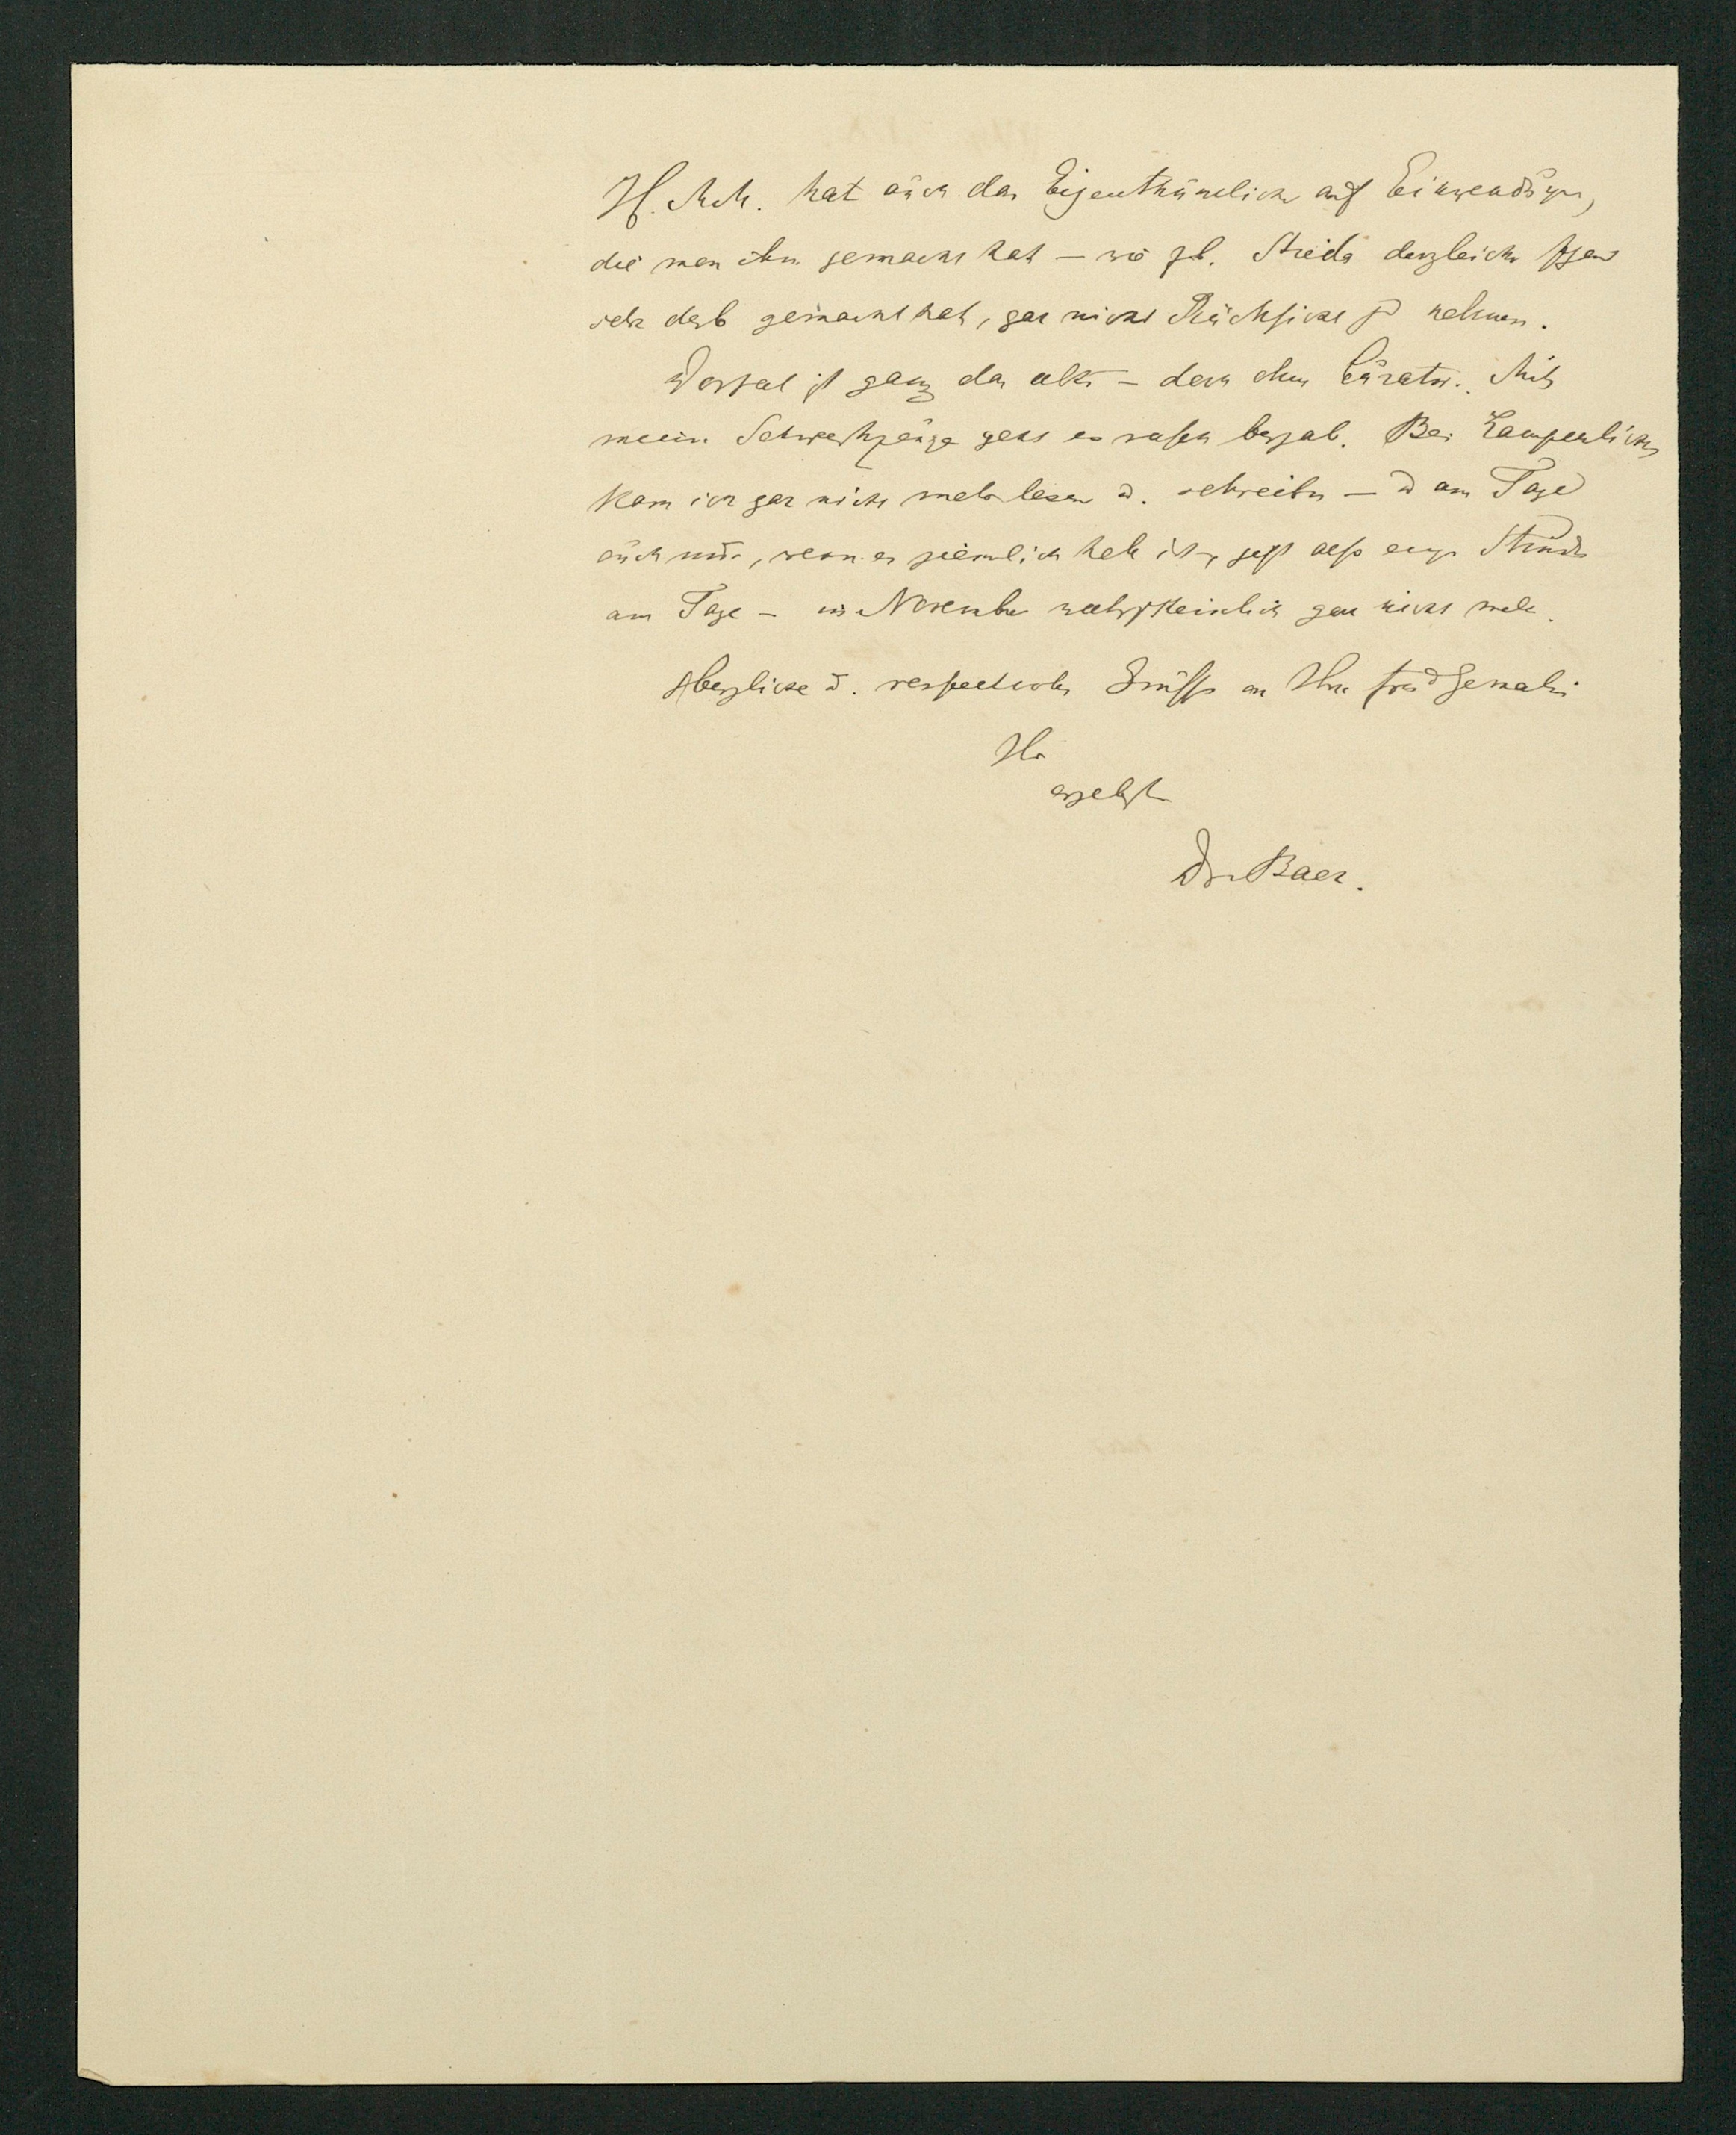 H. M. hat auch das Eigenthümliche auf Einwendungen,
die man ihm gemacht hat – wie z.B. Stieda dergleichen
sehr derb gemacht hat, gar nicht Rücksicht zu nehmen.
Dorpat ist ganz das alte – doch ohne Curator. Mit
meiner geht es rasch bergab. Bei Lampenlicht
kann ich gar nicht mehr lesen u. schreiben – u am Tage
auch nur, wenn es ziemlich hell ist, jetzt also einige Stunden
am Tage – im November wahrscheinlich gar nicht mehr.
Herzliche u. respectvolle Grüsse an Ihre Frau Gemahlin
Ihr
ergebenster
Dr. Baer.